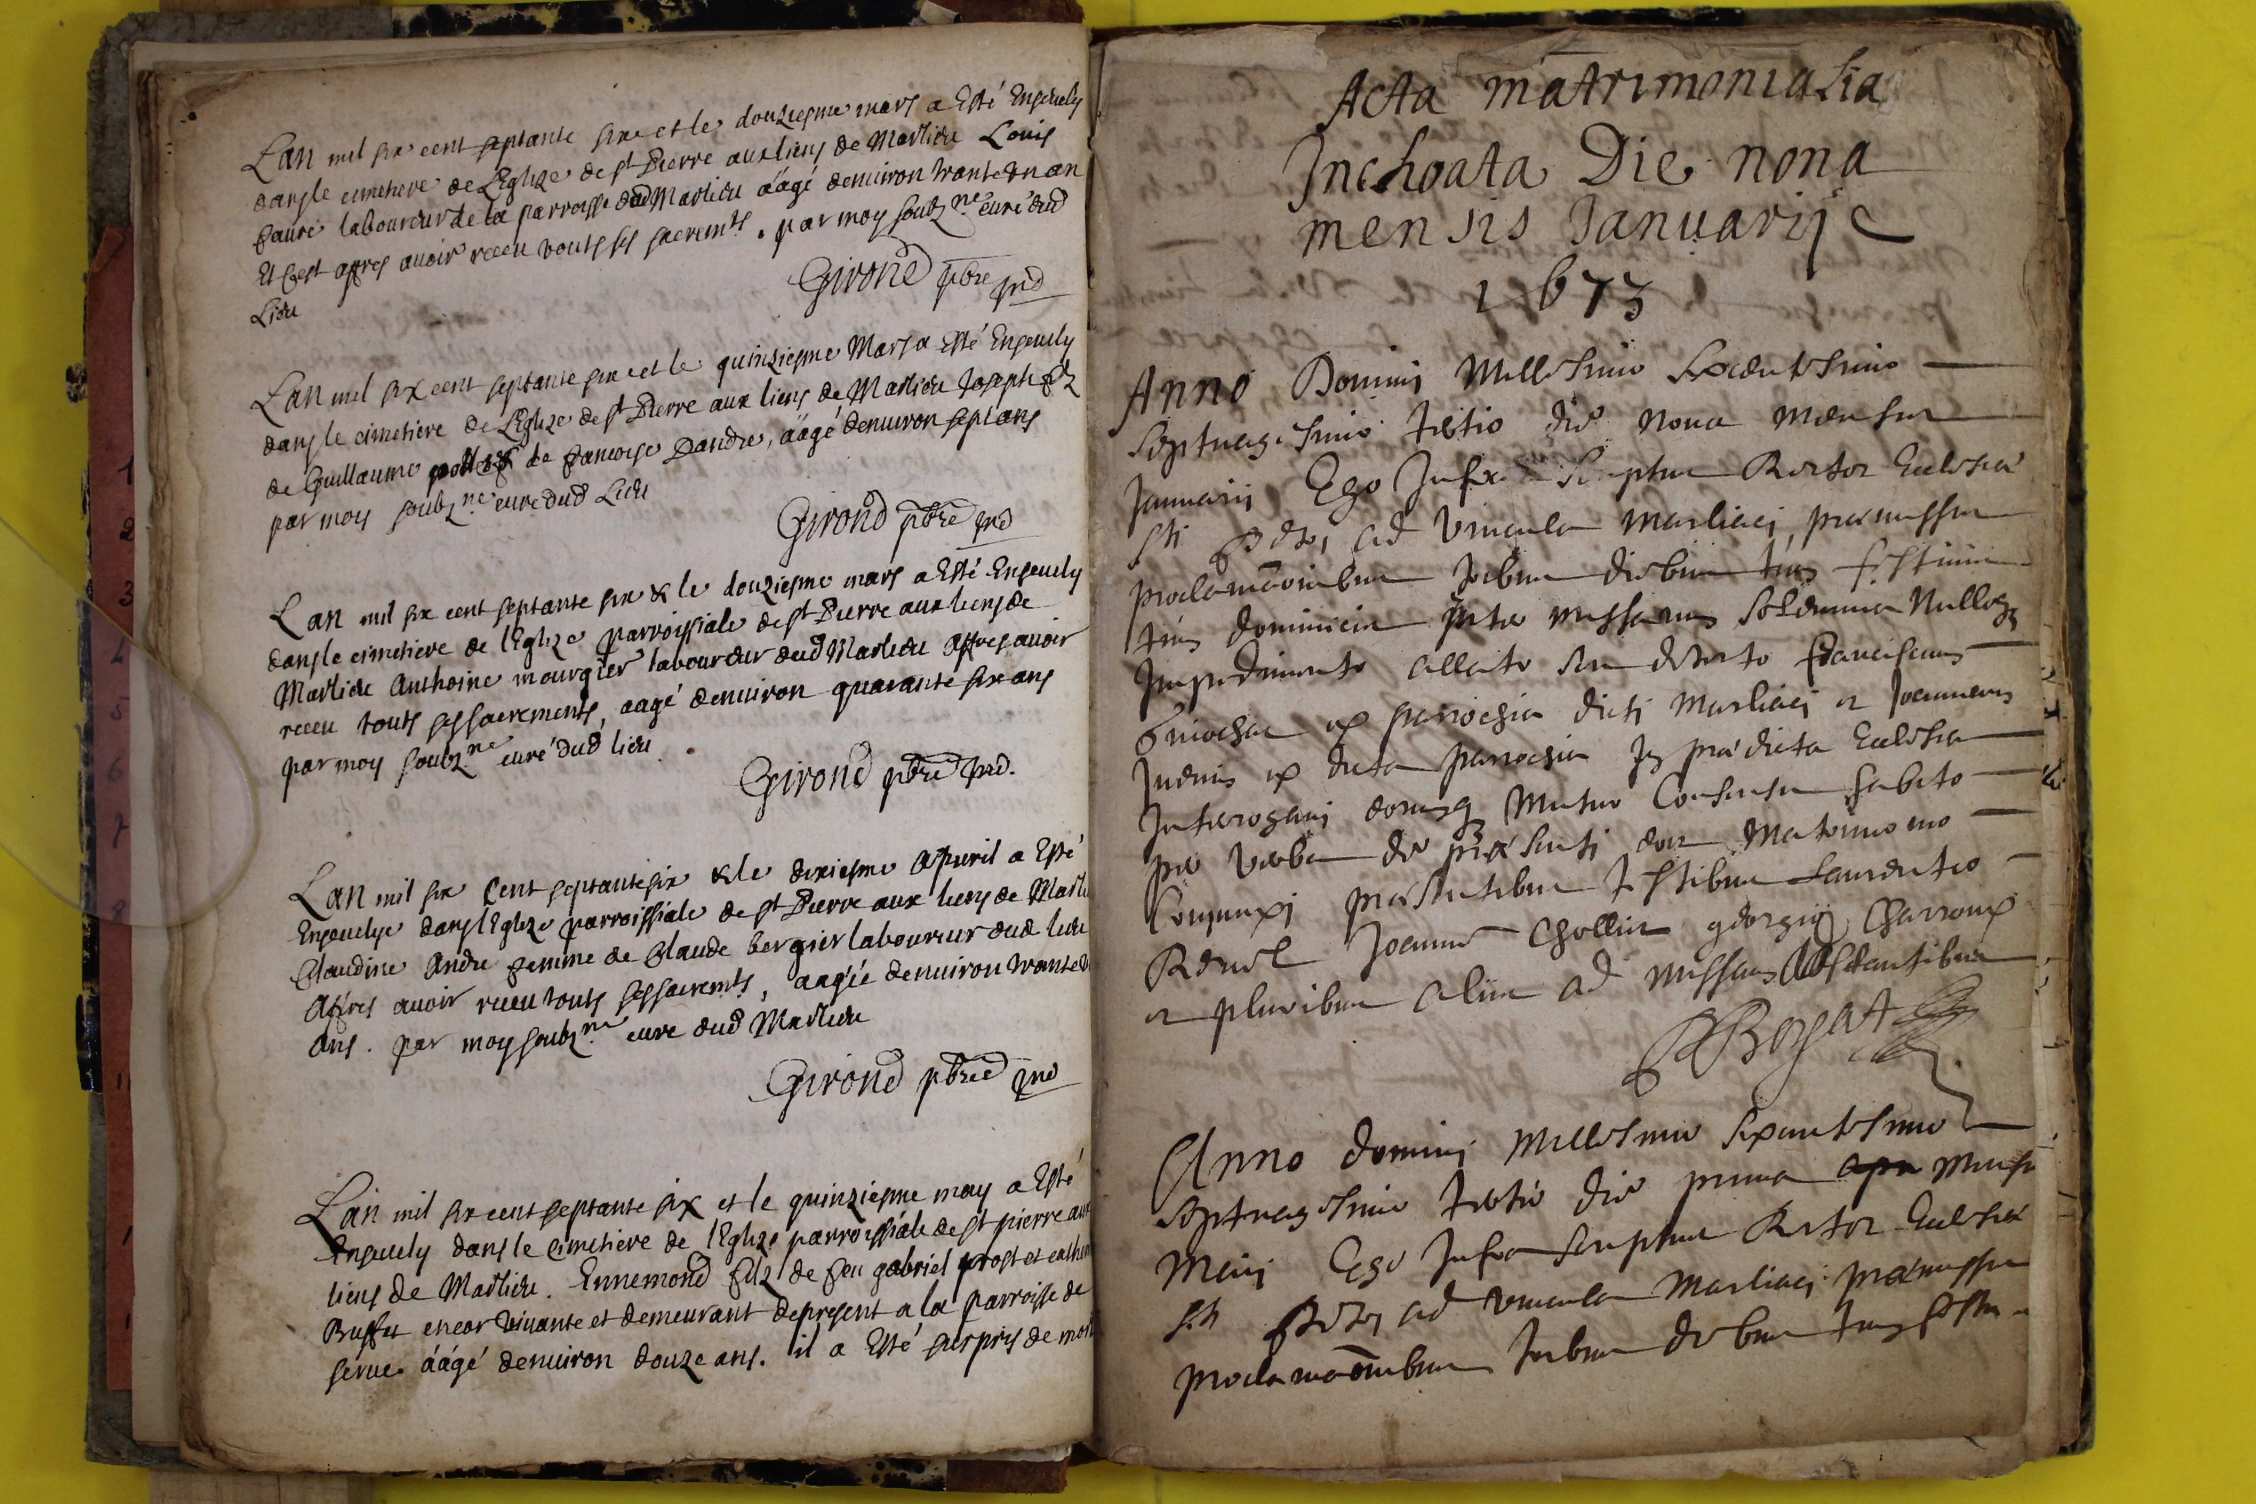 Lan mil six cent septante six et le douziesme mars a Esté Enseuely
dans le cimetiere de L'Eglize de st Pierre aux liens de Marlieu Louis
faure laboureur de la parroisse dud Marlieu aâgé denuiron trante Un an
Et c'est apres auoir receu touts ses sacremts. par moy soubzne curé dud
Lieu
Girond pbre ind
Lan mil six cent septante six et le quinziesme Mars a Esté Enseuely
dans le cimetiere de L'Eglize de st Pierre aux liens de Marlieu Joseph filz
de Guillaume de francoise Dandre, aâgé denuiron sept ans
par moy soubzne curé dud Lieu
Girond pbre ind
Lan mil six cent septante six & le douziesme mars a Esté Enseuely
dans le cimetiere de l'Eglize parroissiale de st Pierre aux liens de
Marlieu Anthoine mourgier laboureur dud Marlieu Apres auoir
receu touts ses sacrements, aagé denuiron quarante six ans
par moy soubzne curé dud lieu.
Girond pbre ind.
Lan mil six Cent septante six & le dixiesme Apuril a Esté
Enseuelye dans l'Eglize parroissiale de st Pierre aux liens de Marli
Claudine Andre femme de Claude bergier laboureur dud lieu
Apres auoir receu touts ses sacremts, aagée denuiron trante
ans. par moy soubzne curé dud Marlieu
Girond pbre ind
Lan mil six cent septante six et le quinziesme may a Esté
Enseuely dans le cimetiere de l'Eglize parroissiale de st pierre aux
liens de Marlieu. Ennemond filz de feu gabriel prost et cathe
Buffet encor viuante et demeurant depresent a la parroisse de
serue aâgé denuiron douze ans. il a Esté surpris de mort
Acta matrimonialia
Inchoata Die nona
mensis Januarij
1673
Anno Domini Millesimo Sexcentesimo
Septuagesimo tertio die nona mensis
Januarii Ego Infra Scriptus Rector Ecclesiæ
Sti Petri ad Vincula Marliaci, præmissis
proclamaõibus tribus diebus festiuis
dominicis inter missarum Solemnia Nulloq
Impedimento allecto seu detecto franciscum
ex parrochia dicti Marliaci et Joannam
ex dicta parrochia In prædicta Ecclesia
Interrogaui eorumq Mutuo Consensu habito
per verba de præsenti eos Matrimonio
Coniunxi præsentibus testibus Laurentio
Joanne Chollier georgio Charroux
et pluribus aliis ad missam Astantibus
Anno domini Millesimo Sexcentesimo
Septuagesimo tertio die prima mensis
Maij Ego Infra Scriptus Rector Ecclesiæ
Sti Petri ad Vincula Marliaci præmissis
proclamaõnibus tribus diebus